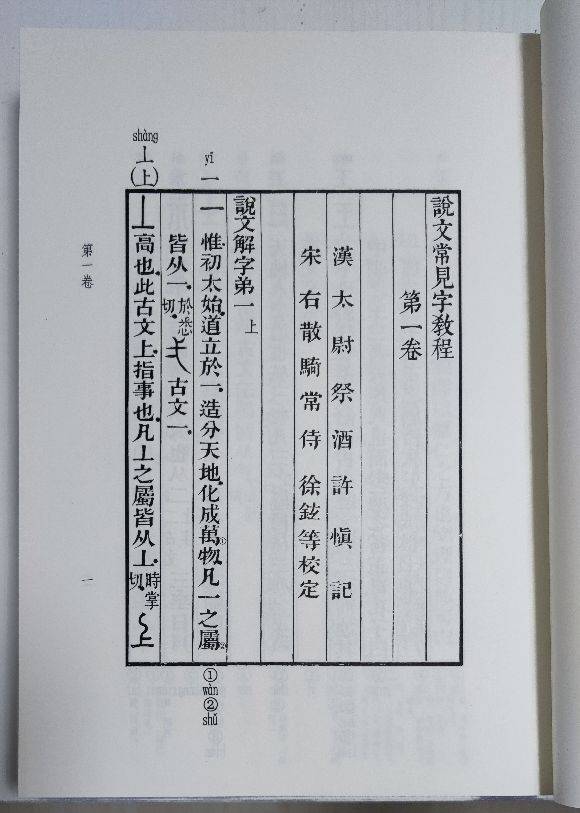 說文常見字教程
第一卷
漢太尉祭酒許慎記
宋右散騎常侍徐鉉等校定
說文解字弟一上
yī
一
一惟初太始道立於一造分天地化成萬物①凡一之屬②
①wàn②shǔ
皆从一於悉切 古文一
shàng
丄(上)
丄高也此古文上指事也凡丄之屬皆从丄時掌切 上
第一卷
一